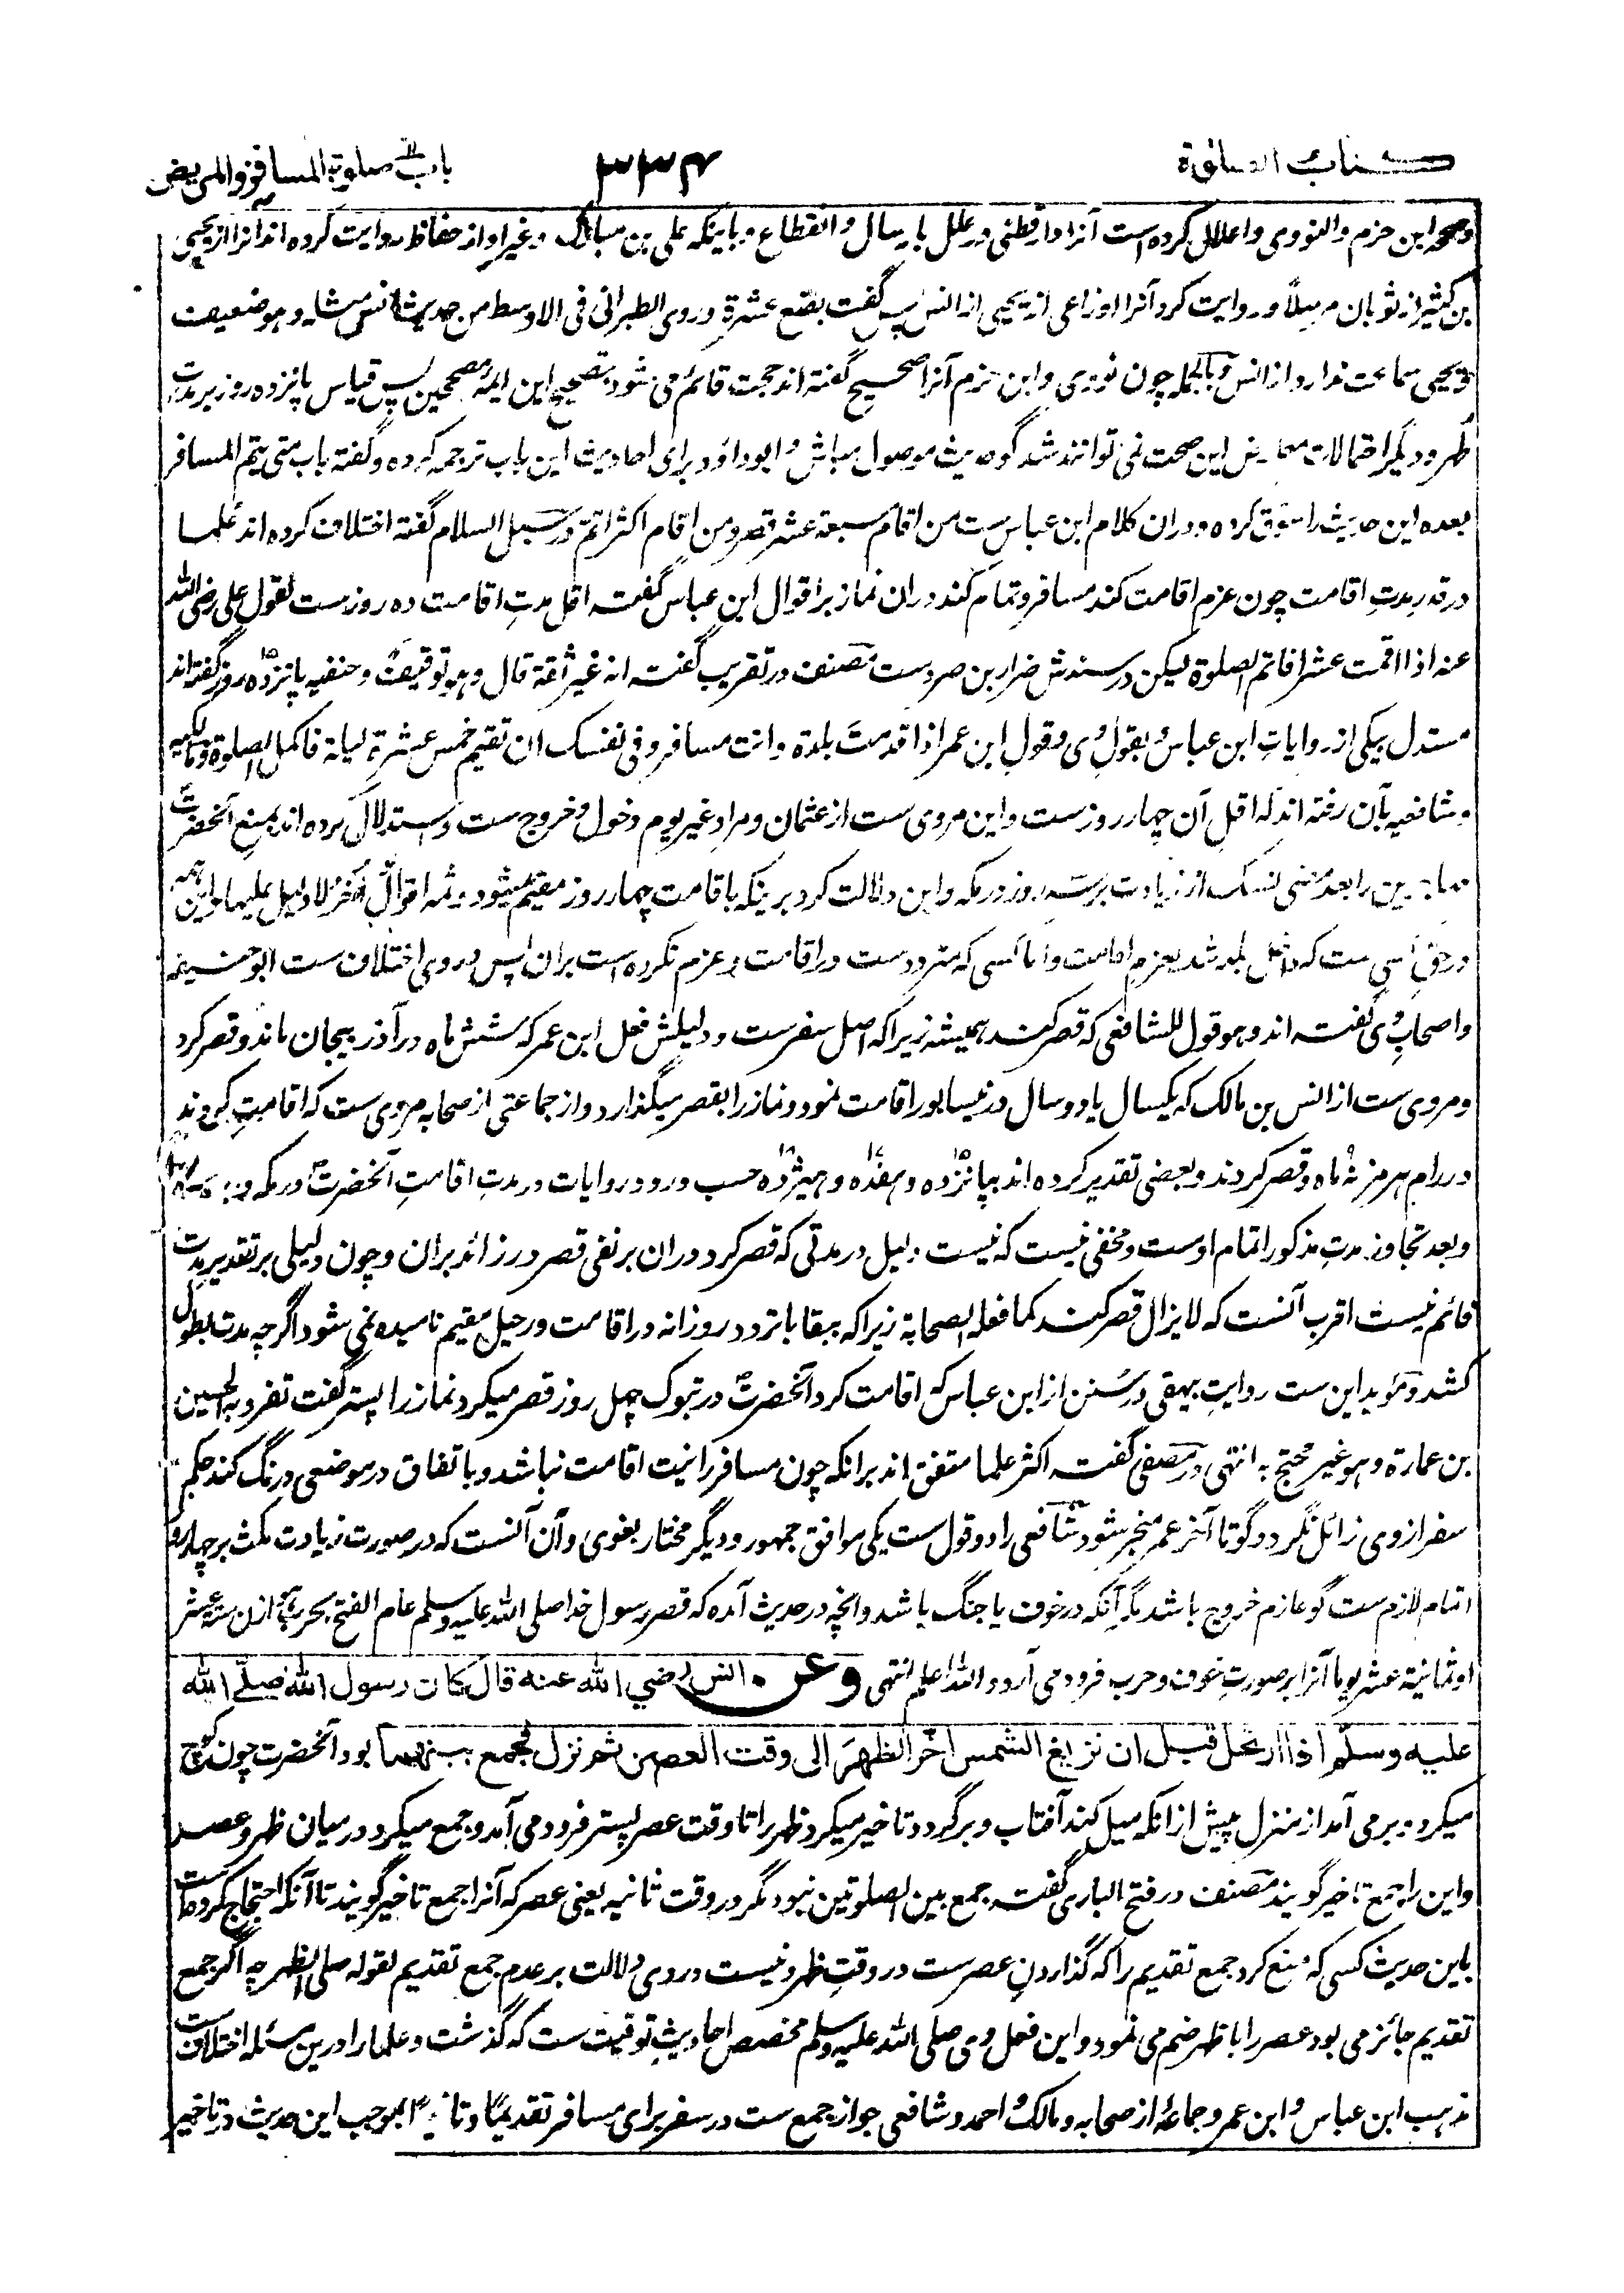 كتاب الصلوة ۳۳۴ باب صلوة المسافر والمريض
وصححه ابن حزم والنووی واعلال کرده است آنرا دارقطنی در علل بارسال وانقطاع وباینکه علی بن مبارک وغیر او از حفاظ روایت کرده اند آنرا از یحیی
بن کثیر از ثوبان مرسلًا وروایت کرد آنرا اوزاعی از یحیی از انس پس گفت بضع عشرة وروی الطبرانی فی الاوسط من حدیث انس مثله وهو ضعیف
ویحیی سماعت ندارد از انس وبالجمله چون نووی وابن حزم آنرا صحیح گفته اند حجت قائم می شود بتصحیح این ایمه مصححین پس قیاس پانزده روز بر مدت
طهر ودیگر احتمالات معارض این صحت نمی توانند شد گو حدیث موصول مباش وابوداؤد برای احادیث این باب ترجمه کرده وگفته باب متی یتم المسافر
بعده این حدیث را سوق کرده ودران کلام ابن عباس ست من اقام سبعة عشر قصر ومن اقام اکثر اتم ودر سبل السلام گفته اختلاف کرده اند علما
در قدر مدتِ اقامت چون عزم اقامت کند مسافر وتمام کند دران نماز بر اقوال ابن عباس گفته اقل مدتِ اقامت ده روزست لقول علی رضی الله
عنه اذا اقمت عشرا فاتم الصلوة لیکن در سندش ضرار بن صردست مصنف در تقریب گفته انه غیر ثقة قال وهو توقیف وحنفیه پانزده روز گفته اند
مستدل بیکی از روایاتِ ابن عباس وبقولِ وی وقولِ ابن عمر اذا قدمت بلدة وانت مسافر وفی نفسک ان تقیم خمس عشرة لیلة فاکمل الصلوة ومالکیه
وشافعیه بآن رفته اند که اقلِ آن چهار روزست واین مروی ست از عثمان ومراد غیر یوم دخول وخروج ست واستدلال کرده اند بمنعِ آنحضرت
مهاجرین را بعد مضی نسک از زیادت بر سه روز در مکه واین دلالت کرد برینکه باقامت چهار روز مقیم میشود وثمه اقوالٌ أُخَرُ لا دلیل علیها واین همه
در حق کسی ست که داخل بلد شد بعزمِ اقامت واما کسی که مترددست در اقامت وعزم نکرده است بران پس در وی اختلاف ست ابوحنیفه
واصحابِ وی گفته اند وهو قول للشافعی که قصر کند همیشه زیراکه اصل سفرست ودلیلش فعل ابن عمر که شش ماه در آذربیجان ماند وقصر کرد
ومروی ست از انس بن مالک که یکسال یا دو سال در نیسابور اقامت نمود ونماز را بقصر میگذارد واز جماعتی از صحابه مروی ست که اقامت کردند
در رام هرمز نه ماه وقصر کردند وبعضی تقدیر کرده اند بپانزده وهفده وهیژده حسب ورود روایات در مدتِ اقامتِ آنحضرت در مکه
وبعد تجاوز مدتِ مذکور اتمام اوست ومخفی نیست که نیست دلیل در مدتی که قصر کرد دران بر نفی قصر در زائد بران وچون دلیلی بر تقدیر مدت
قائم نیست اقرب آنست که لا یزال قصر کند کما فعله الصحابة زیراکه ببقا با تردد روزانه در اقامت ورحیل مقیم نامیده نمی شود اگرچه مدت بطول
کشد ومؤید این ست روایتِ بیهقی در سنن از ابن عباس که اقامت کرد آنحضرت در تبوک چهل روز قصر میکرد نماز را پستر گفت تفرد به الحسین
بن عمارة وهو غیر محتج به انتهی در مصفی گفته اکثر علما متفق اند برانکه چون مسافر را نیت اقامت نباشد وباتفاق در موضعی درنگ کند حکم
سفر از وی زائل نگردد گو تا آخر عمر منجر شود شافعی را دو قول ست یکی موافق جمهور ودیگر مختار بغوی وآن آنست که در صورت زیادت مکث بر چهار روز
اتمام لازم ست گو عازم خروج باشد مگر آنکه در خوف یا جنگ باشد وآنچه در حدیث آمده که قصر رسول خدا صلی الله علیه وسلم عام الفتح بحرب هوازن سبعة عشر
او ثمانیة عشر یوما آنرا بر صورتِ خوف وحرب فرود می آرد والله اعلم انتهی وعن انس رضي الله عنه قال كان رسول الله صلّى الله
عليه وسلم اذا ارتحل قبل ان تزيغ الشمس اخّر الظهرَ الى وقت العصر ثم نزل فجمع بينهما بود آنحضرت چون کوچ
میکرد وبرمی آمد از منزل پیش از انکه میل کند آفتاب وبرگردد تاخیر میکرد ظهر را تا وقت عصر پستر فرود می آمد وجمع میکرد درمیان ظهر وعصر
واین را جمع تاخیر گویند مصنف در فتح الباری گفته جمع بین الصلوتین نبود مگر در وقت ثانیه یعنی عصر که آنرا جمع تاخیر گویند تا آنکه احتجاج کرده است
باین حدیث کسی که منع کرد جمع تقدیم را که گذاردنِ عصرست در وقتِ ظهر ونیست در وی دلالت بر عدم جمع تقدیم لقوله صلی الظهر چه اگر جمع
تقدیم جائز می بود عصر را با ظهر ضم می نمود واین فعل وی صلی الله علیه وسلم مخصص احادیثِ توقیت ست که گذشت وعلما را درین مسئله اختلاف ست
مذهب ابن عباس وابن عمر وجماعهٔ از صحابه ومالک واحمد وشافعی جواز جمع ست در سفر برای مسافر تقدیمًا وتاخیرًا بموجب این حدیث در تاخیر